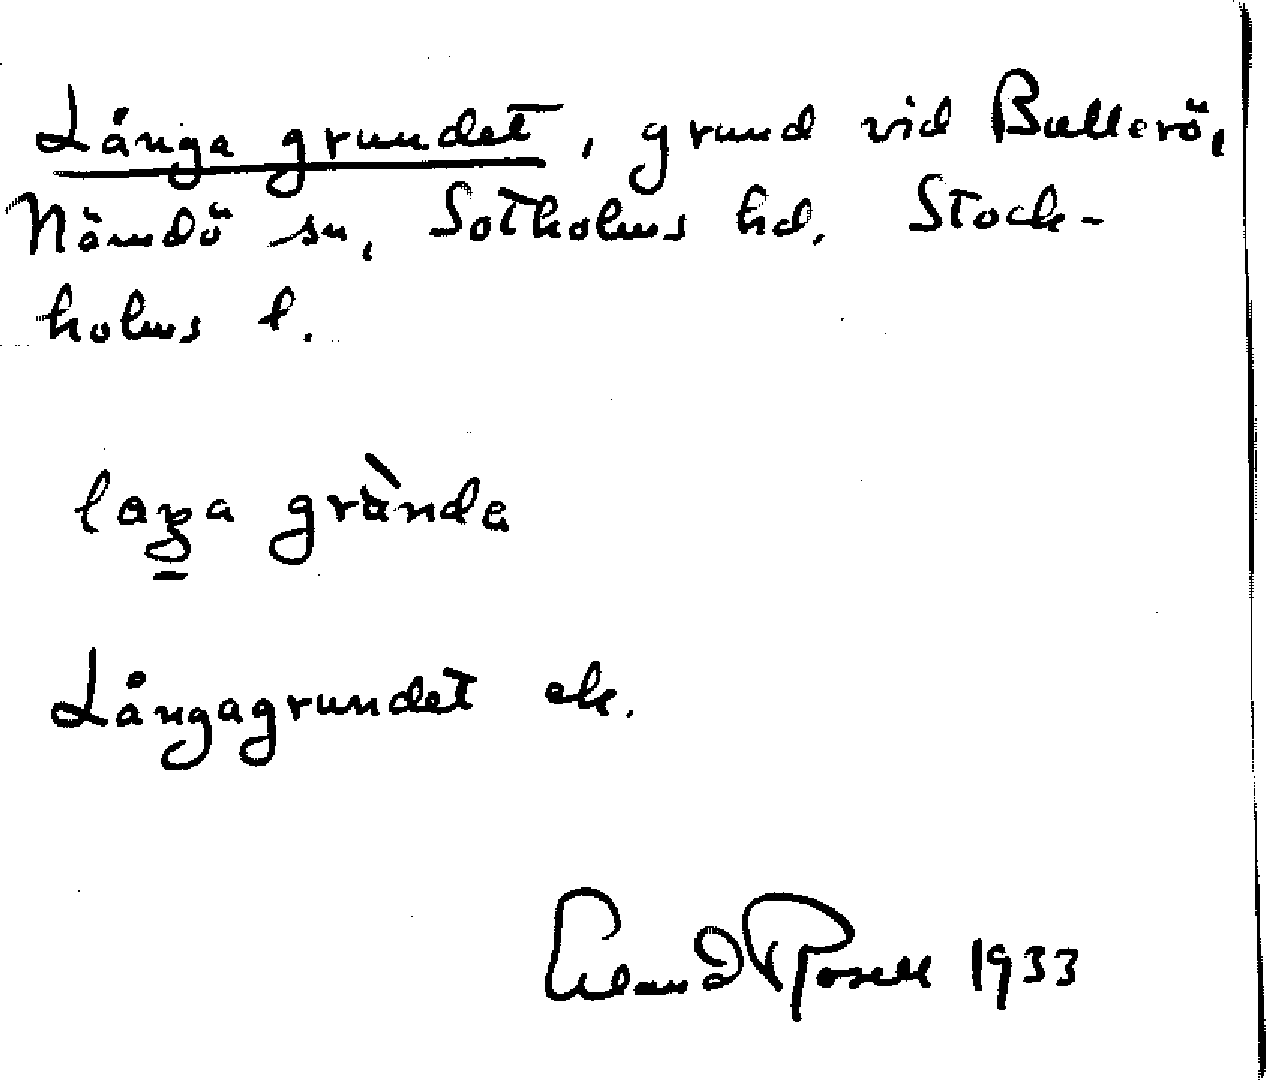 Långa grundet, grund vid Bullerö,
Nämdö sn, Sotholms hd. Stock-
holms l.
laŋa grùnda
Långagrundet ek.
Erland Rosell 1933